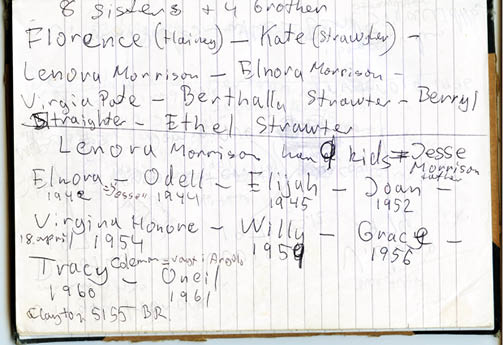 8 Sisters + 4 brother
Florence (Hainey) – Kate (Strawter) –
Lenora Morrison – Elnora Morrison –
Virgia Pate – Berthally Strawter – Berryl
Straighter – Ethel Strawter
Lenora Morrison han 9 kids = Jesse
Morrison
Elnora – Odell – Elijah – Joan –
1942 = Jessee 1944 1945 1952
Virgina Honore – Willy – Grace –
18. april 1954 1959 1956
Tracy Coleman – Oneil
1960 1961
Clayton 5155 BR.